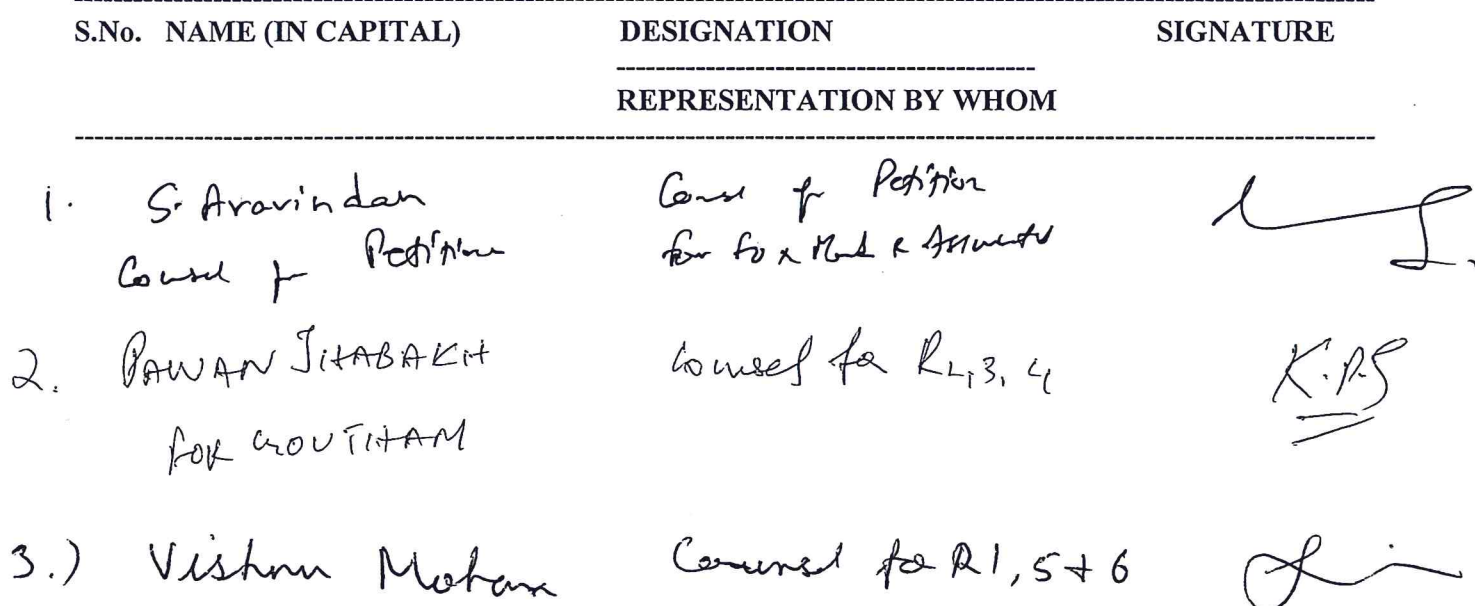 S.No. NAME (IN CAPITAL) DESIGNATION SIGNATURE
REPRESENTATION BY WHOM
1. S. Aravindan Counsel for Petitioner
Counsel for Petitioner for Fox &
2. PAWAN JHABAKH Counsel for R2, 3, 4 K.P.S
FOR GOUTHAM
3.) Vishnu Mohan Counsel for R1, 5 + 6